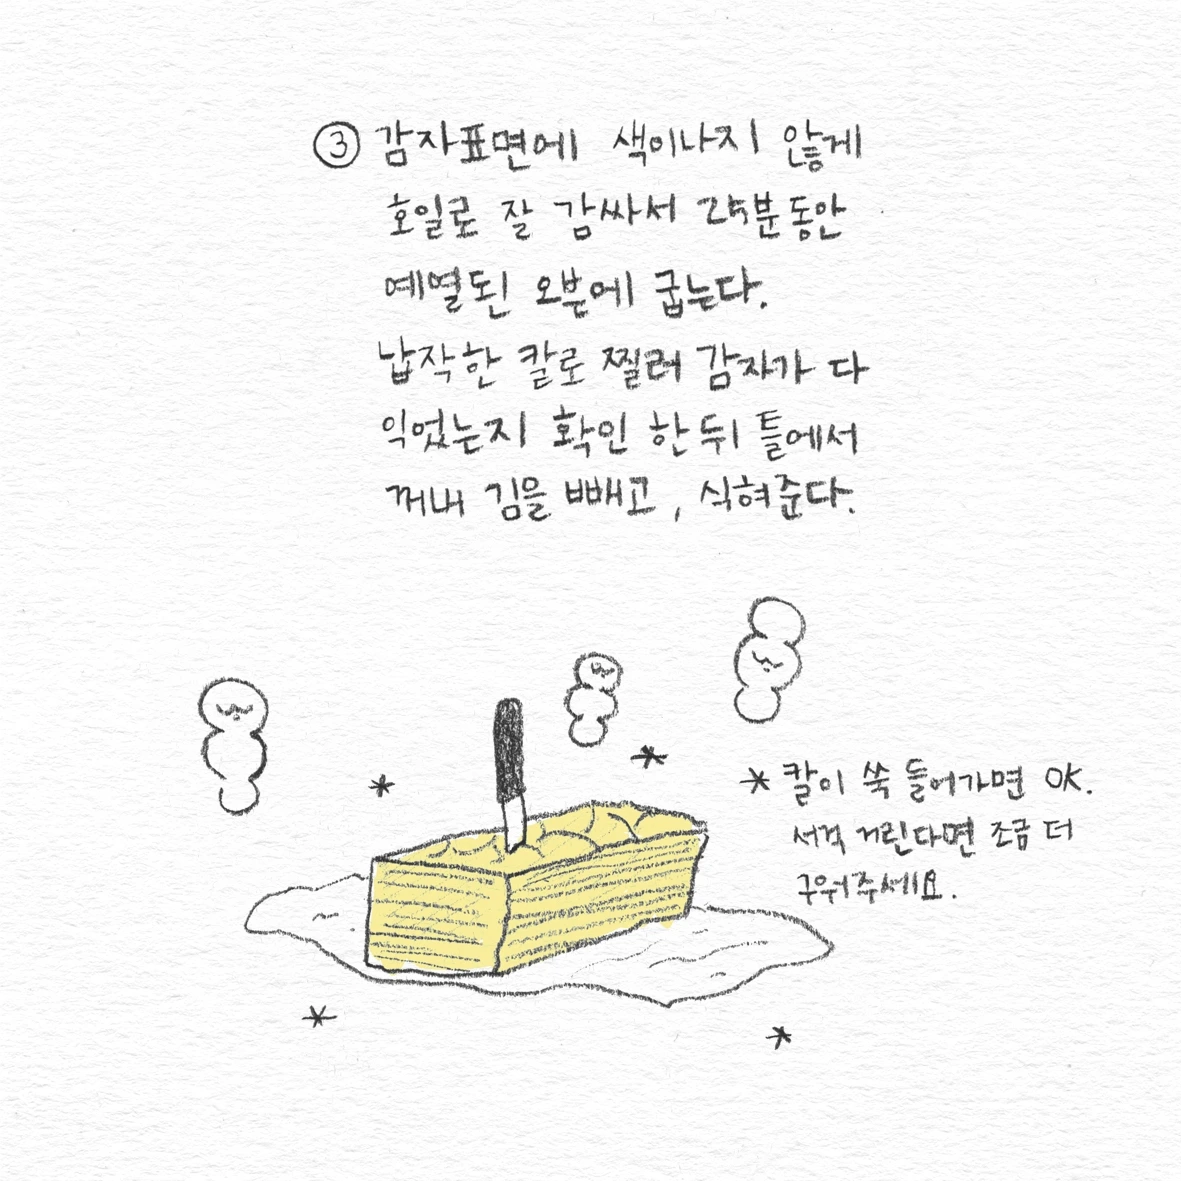 ③ 감자표면에 색이나지 않게
호일로 잘 감싸서 25분동안
예열된 오븐에 굽는다.
납작한 칼로 찔러 감자가 다
익었는지 확인 한 뒤 틀에서
꺼내 김을 빼고, 식혀준다.
* 칼이 쑥 들어가면 OK.
서걱 거린다면 조금 더
구워주세요.